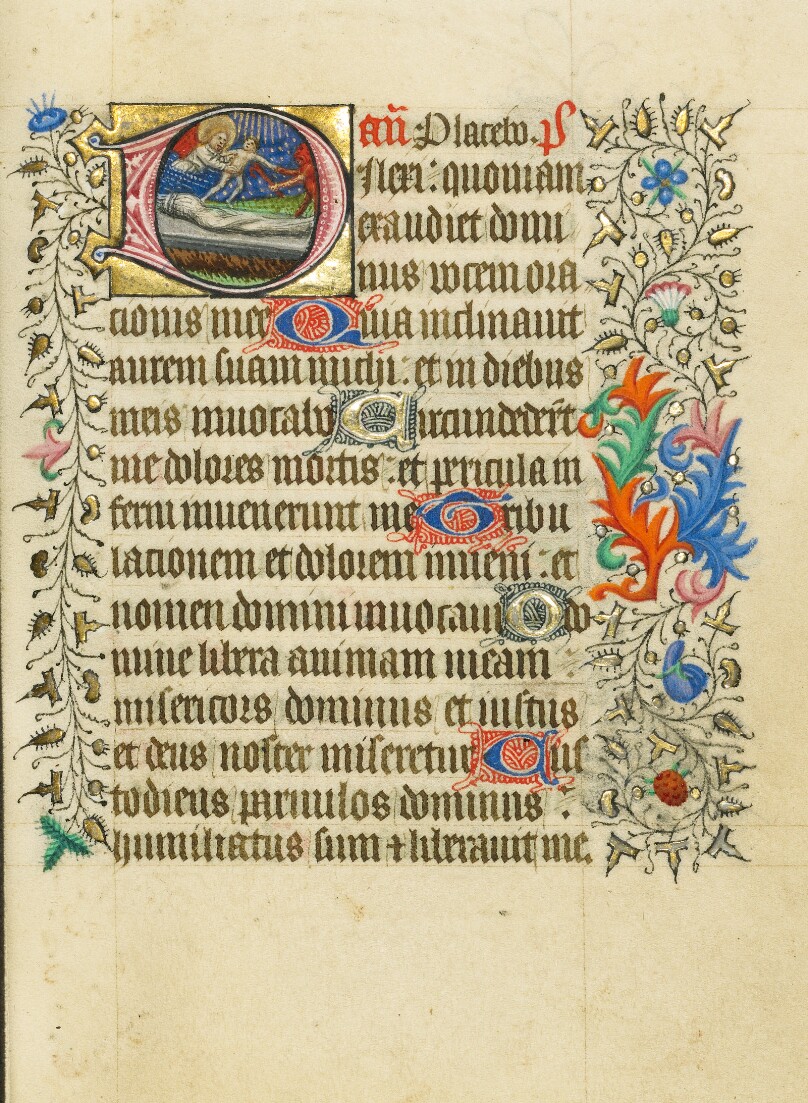 Dañ Placebo. ps
ilexi: quoniam
exaudiet domi
nus vocem ora
cionis mee Quia inclinauit
aurem suam michi: et in diebus
meis inuocabo Circundederūt
me dolores mortis: et pericula in
ferni inuenerunt me Tribu
lacionem et dolorem inueni: et
nomen domini inuocaui O do
mine libera animam meam:
misericors dominus et iustus
et deus noster miseretur Cus
todiens paruulos dominus:
humiliatus sum ⁊ liberauit me.